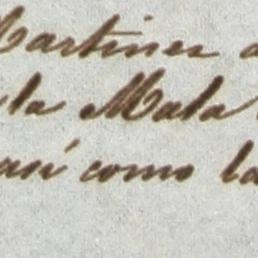 Martinez a
la Mala
asi como la